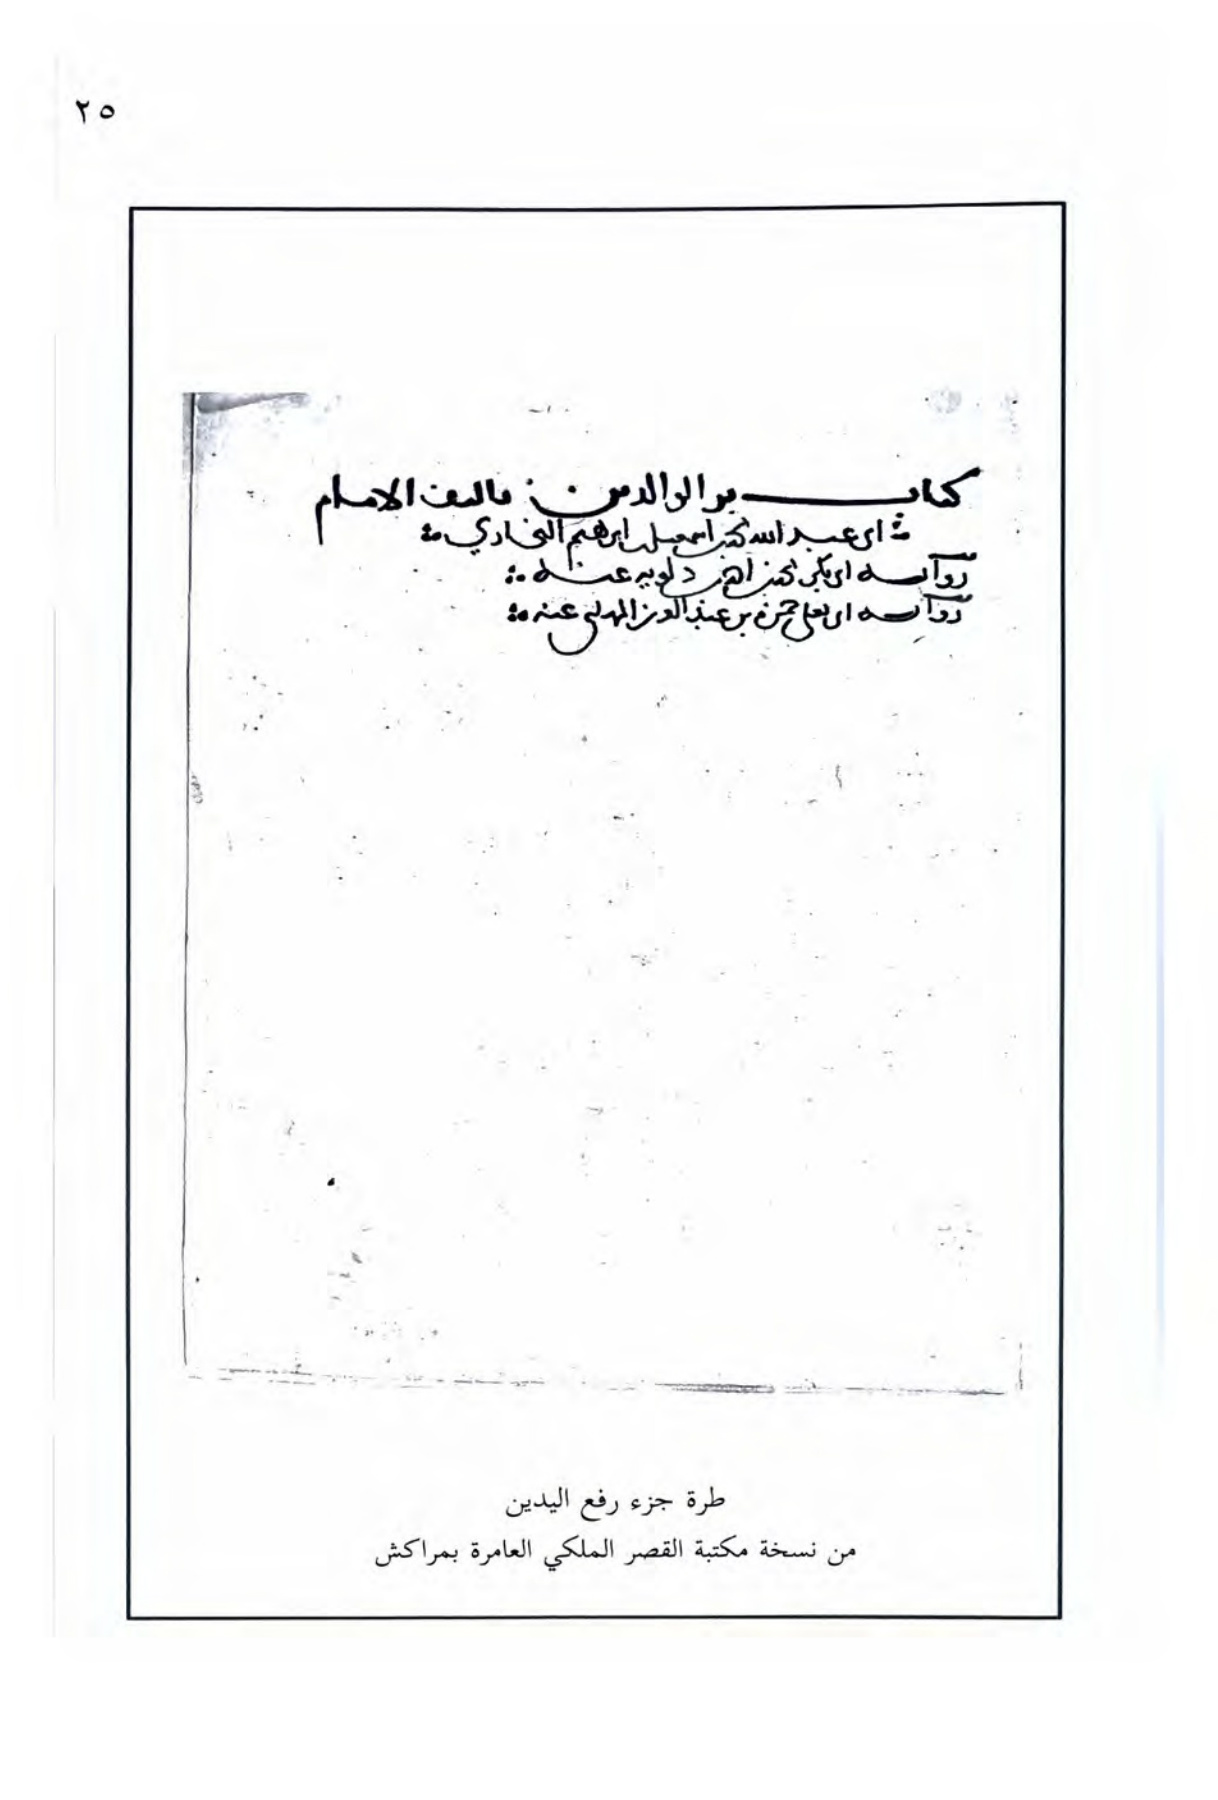 ٢٥
كتاب بر الوالدين تاليف الامام
ابى عبد الله محمد بن اسمعيل بن ابرهيم البخاري
رواية ابى بكر محمد بن احمد بن دلويه عنه
رواية ابى يعلى حمزة بن عبد العزيز المهلبي عنه
طرة جزء رفع اليدين
من نسخة مكتبة القصر الملكي العامرة بمراكش